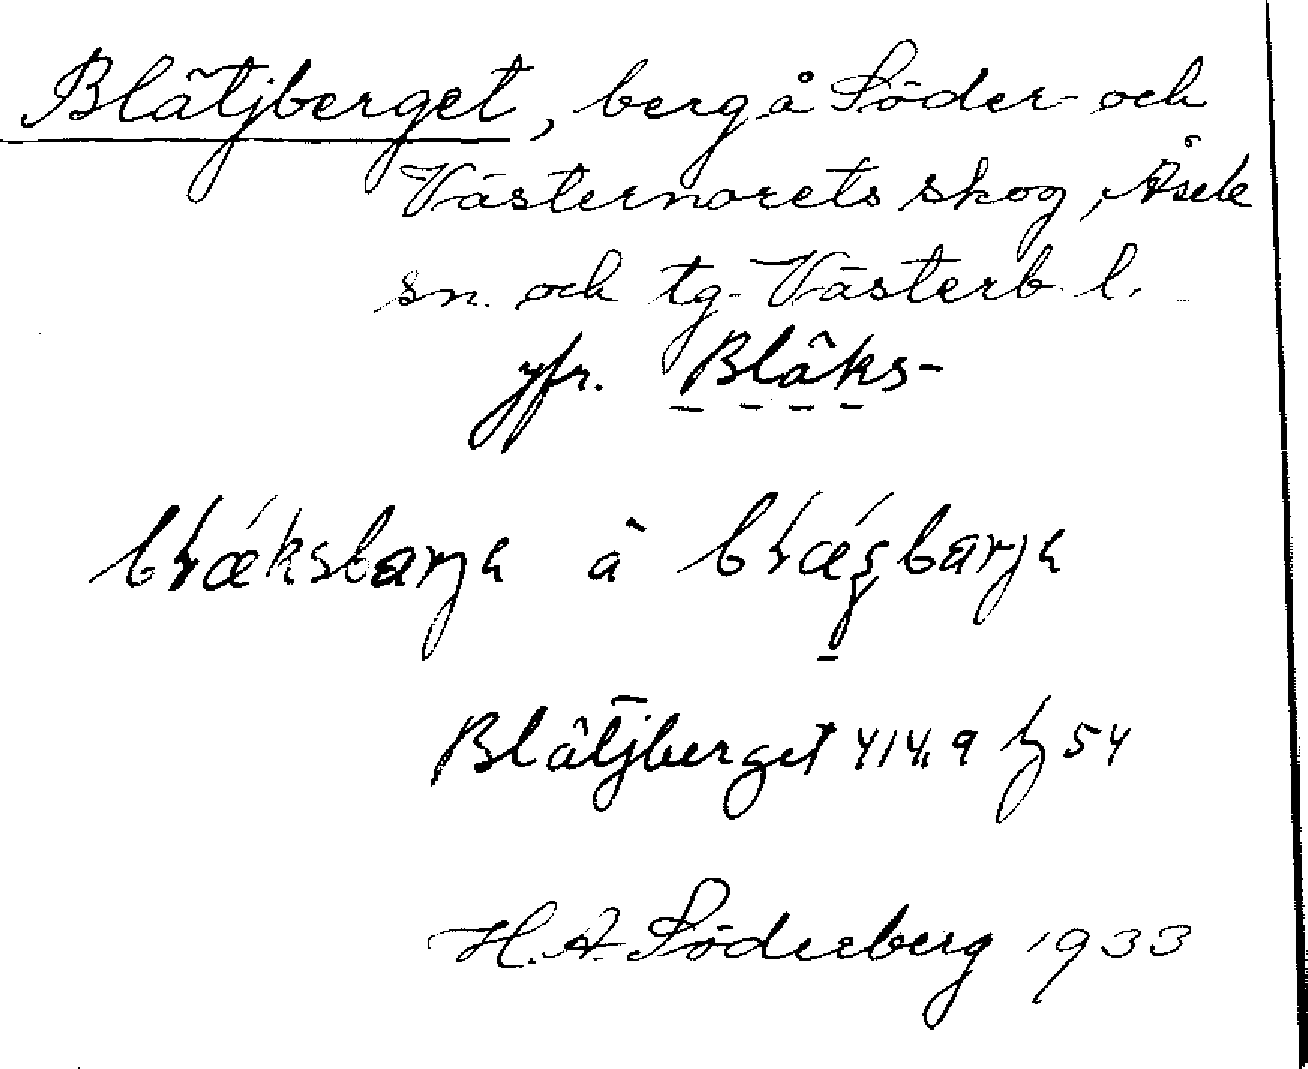 Blåtjberget, berg å Söder- och
Västernorets skog, Åsele
sn. och tg. Västerb. l.
jfr. Blåks-
å
Blåtjberget 414,9 54
H. A. Söderberg 1933